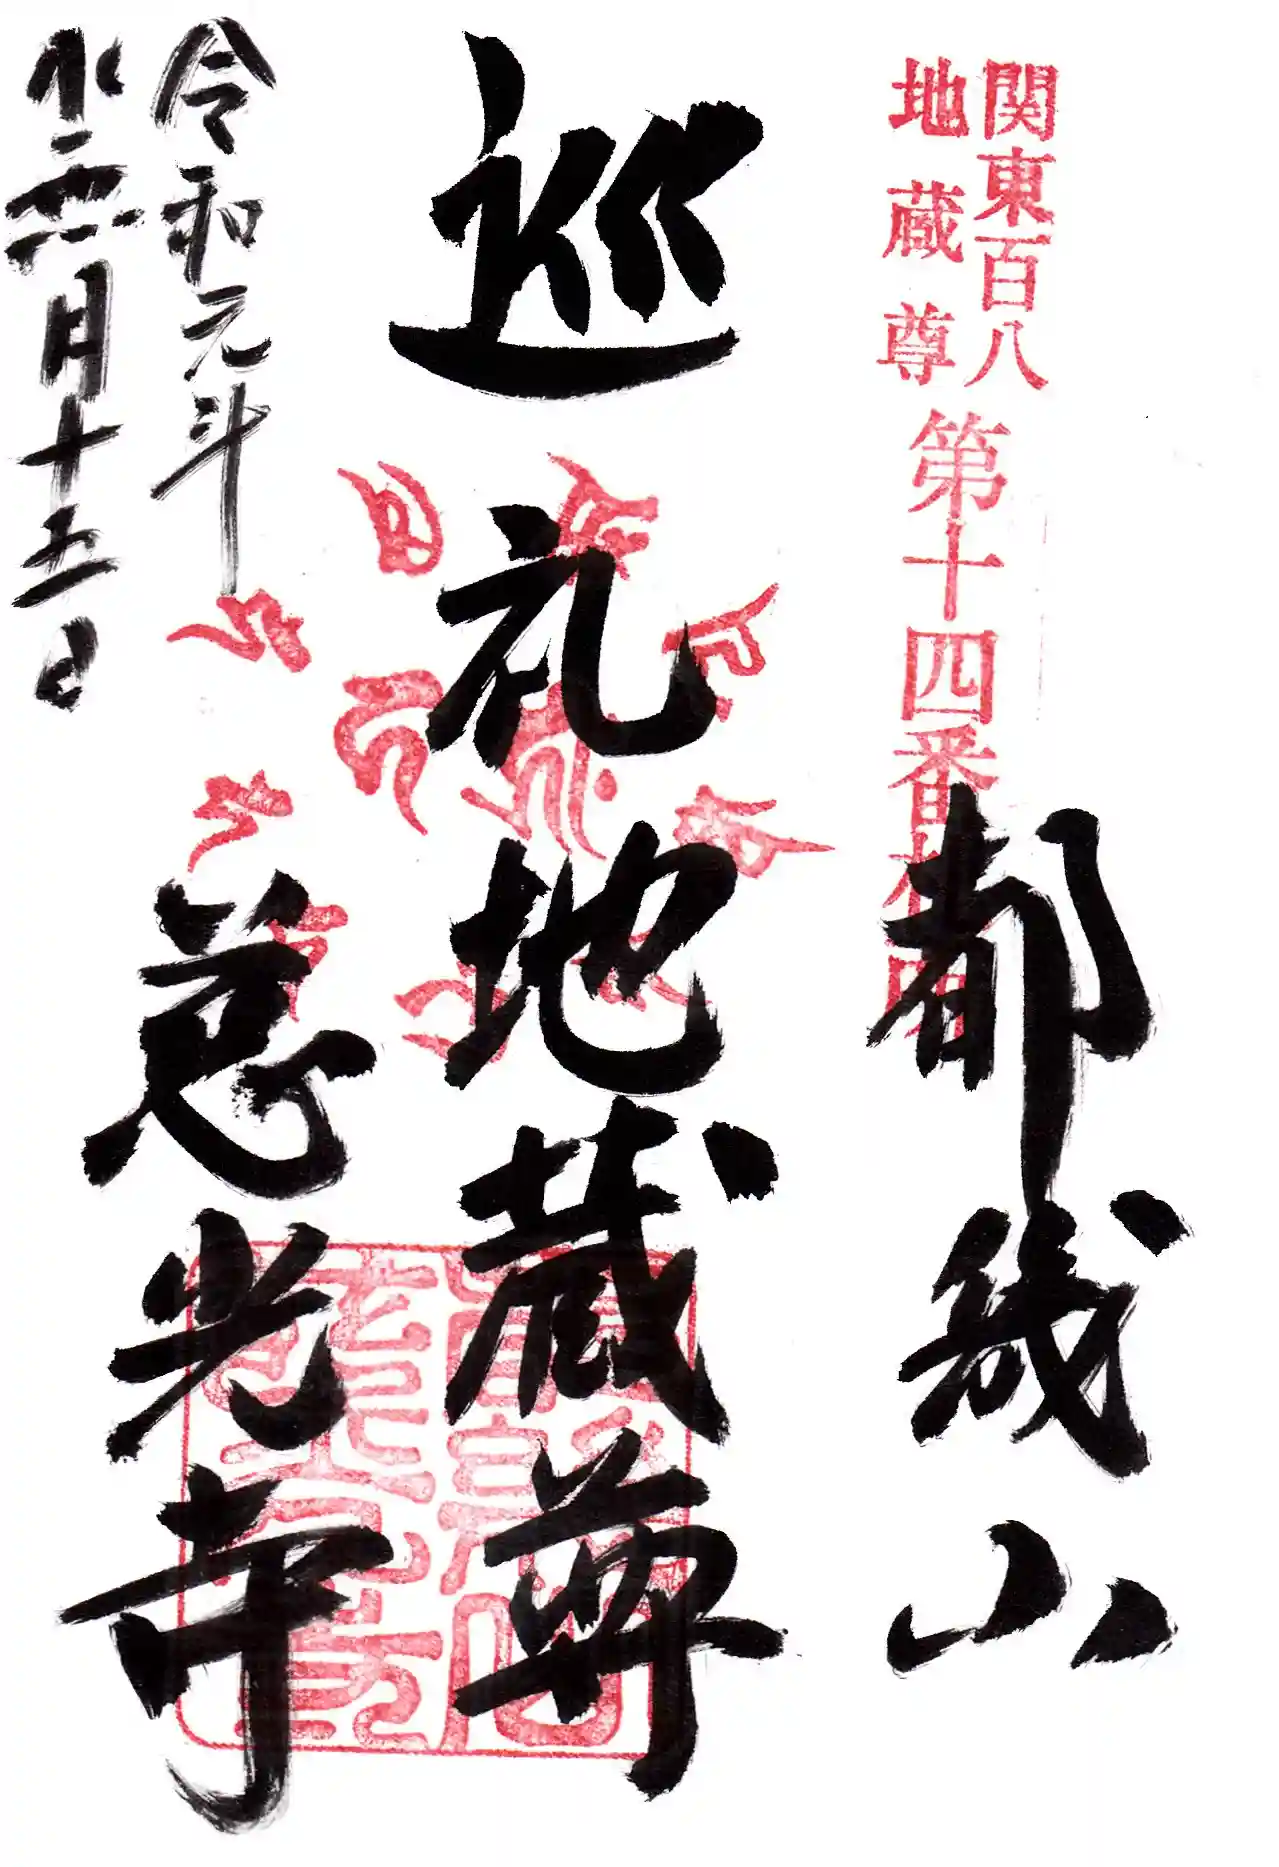 関東百八
地蔵尊
第十四番
都幾山
巡礼地蔵尊
慈光寺
令和元年
月十五日